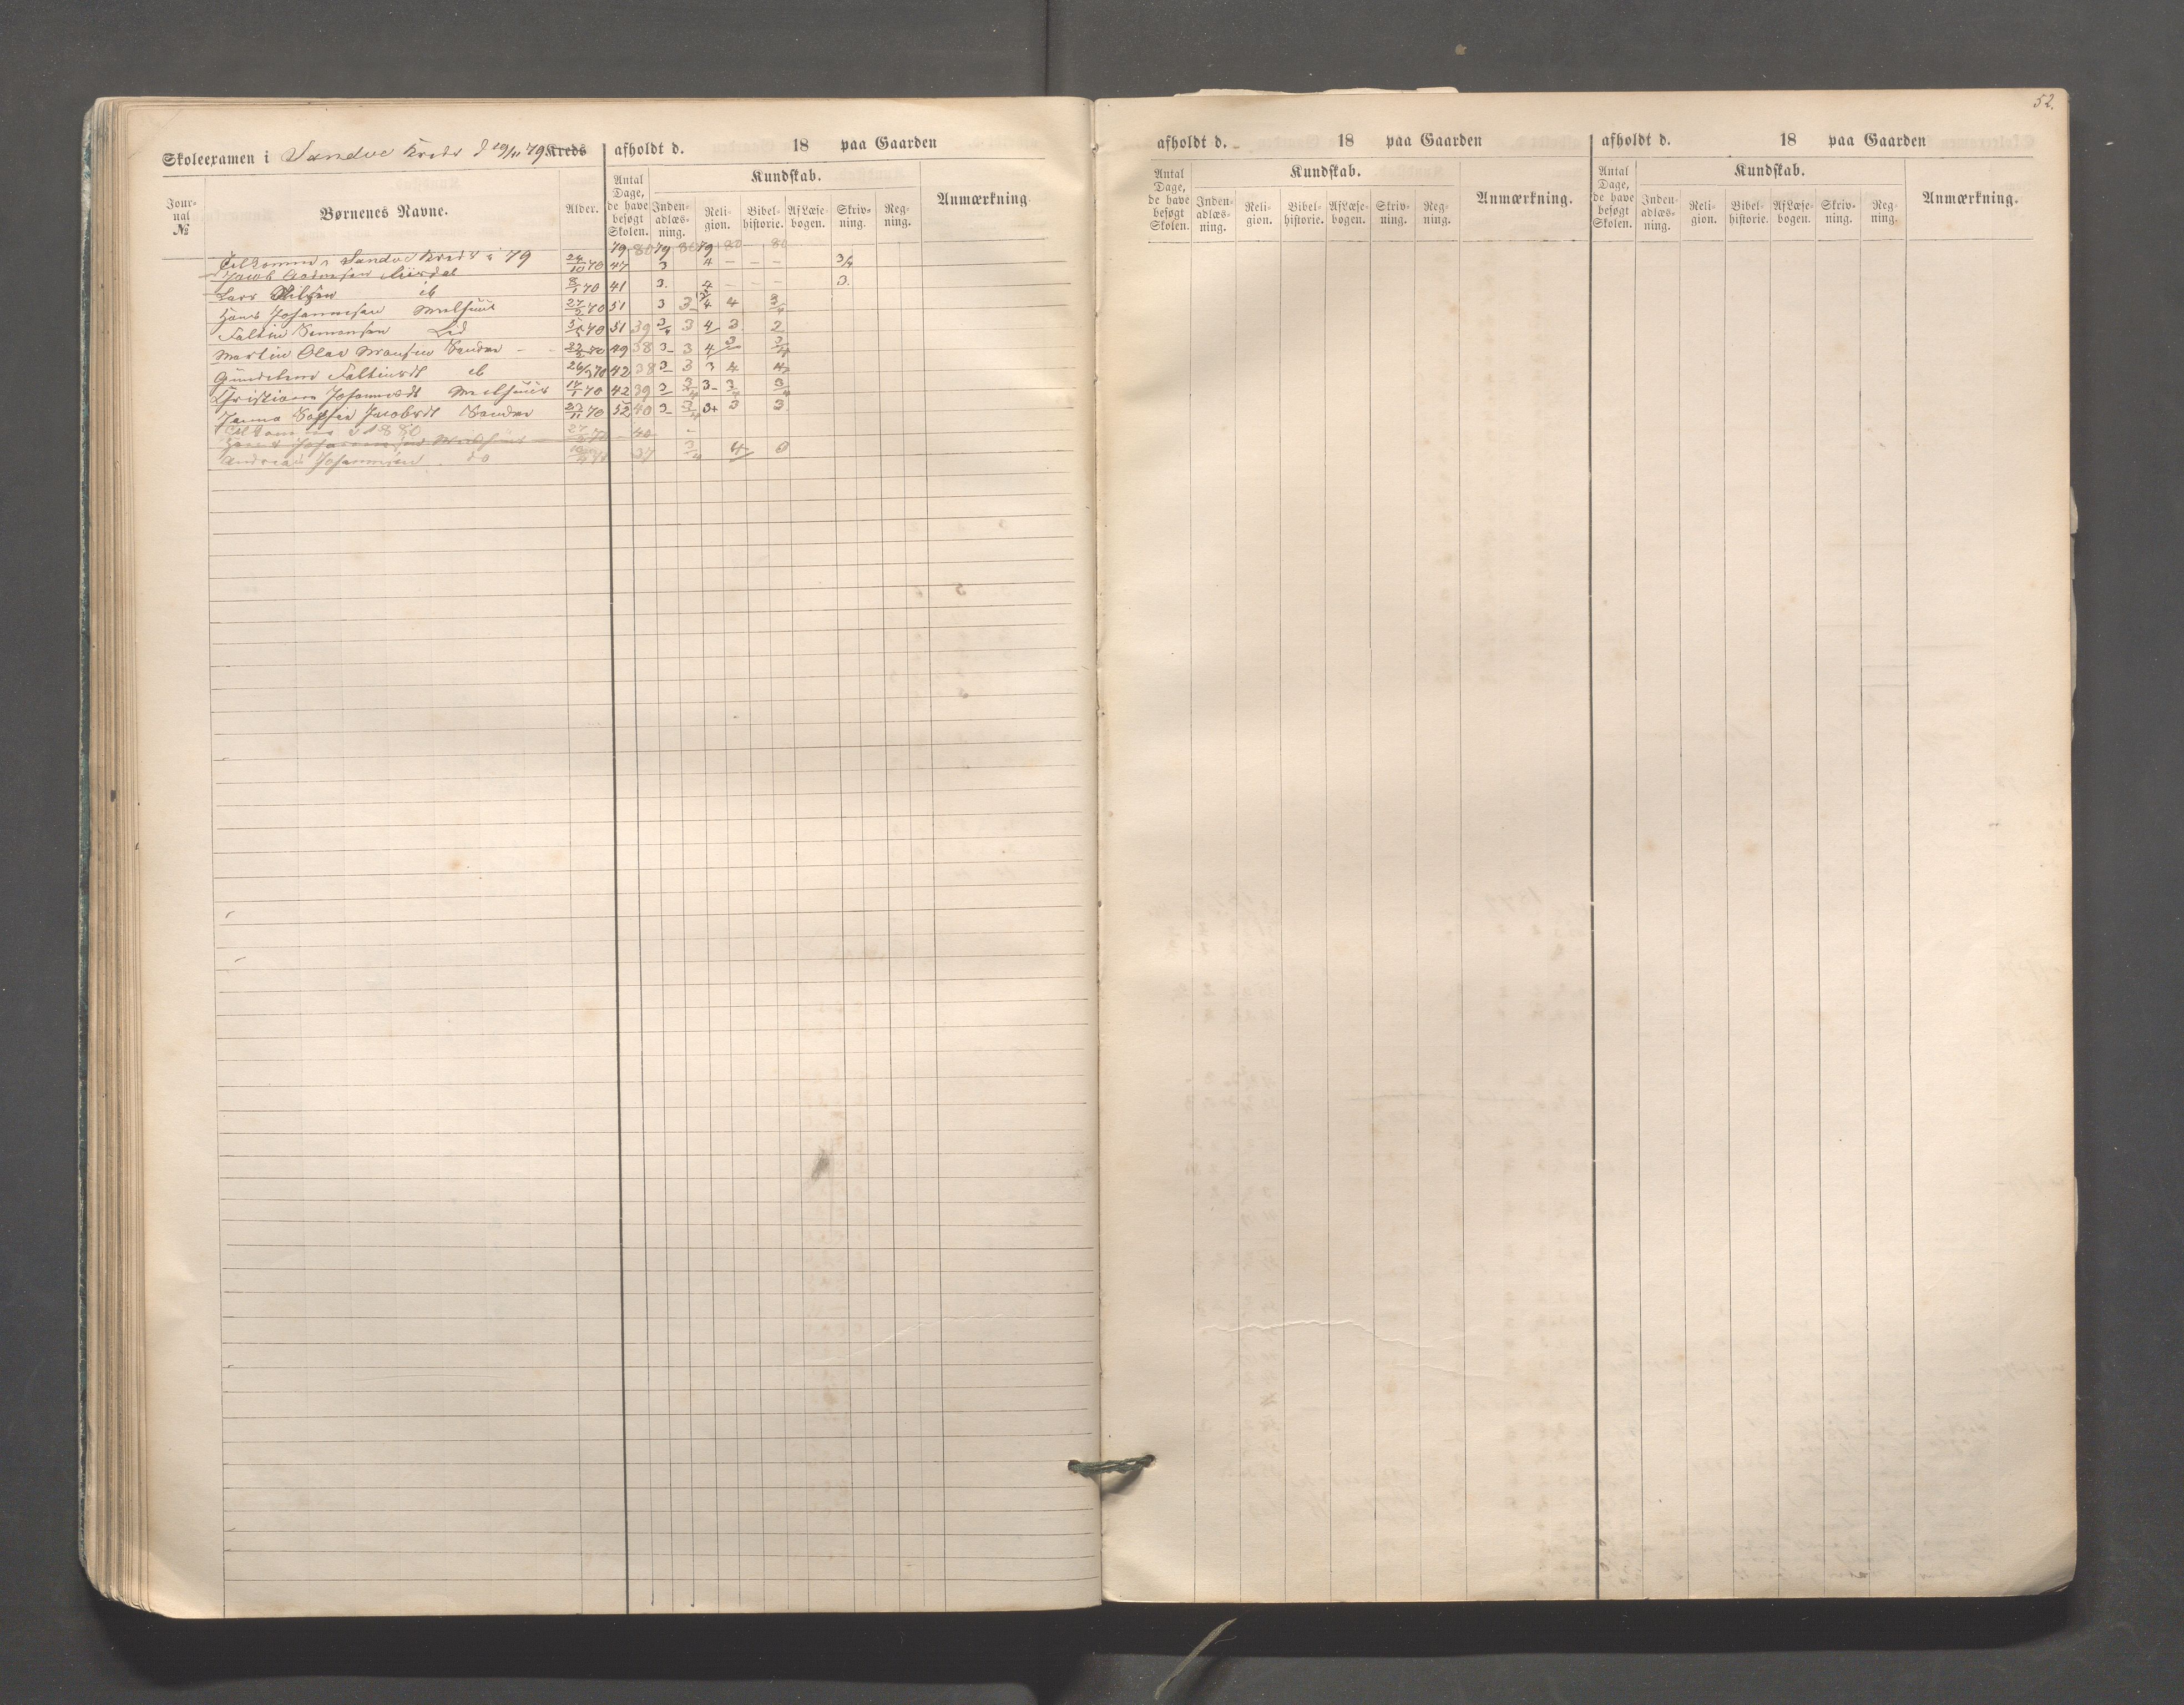 52.
Skoleexamen i Sandve Kreds d 19/11 79 Kreds afholdt d. 18 paa Gaarden
Jour-
nal
№
Børnenes Navne.
Alder.
Antal
Dage,
de have
besøgt
Skolen.
Kundskab.
Inden-
adlæs-
ning.
Reli-
gion.
Bibel-
historie.
Af Læse-
bogen.
Skriv-
ning.
Reg-
ning.
Anmærkning.
79 80 79 80 79 80 — 80
Tilkomne i Sandve Kreds i 79
Jacob 24/10 70 47 3 4 — — — 3/4
Lars ib 8/1 70 41 3. 4 — — — 3.
Hans Johannesen Melhuus 27/2 70 51 3 3 4 4 3/4
Faltin Simonsen Lid 5/5 70 51 39 3/4 3 4 3 2
Martin Olai Monsen Sandve 22/2 70 49 38 3 3 4 3 3/4
Gundeline Faltinsdt ib 26/3 70 42 38 3 3 3 4 4
Christiane Johannesdt Melhuus 14/1 70 42 39 3 3/4 3 3/4 3/4
Janna Sophie Jacobsdt Sandve 23/11 70 52 40 3 3/4 3+ 3 3
Tilkomne i 1880
Hans Johannesen Melhuus 40
Andreas Johannesen do 37 3/4 4 3
afholdt d. 18 paa Gaarden
Antal
Dage,
de have
besøgt
Skolen.
Kundskab.
Inden-
adlæs-
ning.
Reli-
gion.
Bibel-
historie.
Af Læse-
bogen.
Skriv-
ning.
Reg-
ning.
Anmærkning.
afholdt d. 18 paa Gaarden
Antal
Dage,
de have
besøgt
Skolen.
Kundskab.
Inden-
adlæs-
ning.
Reli-
gion.
Bibel-
historie.
Af Læse-
bogen.
Skriv-
ning.
Reg-
ning.
Anmærkning.